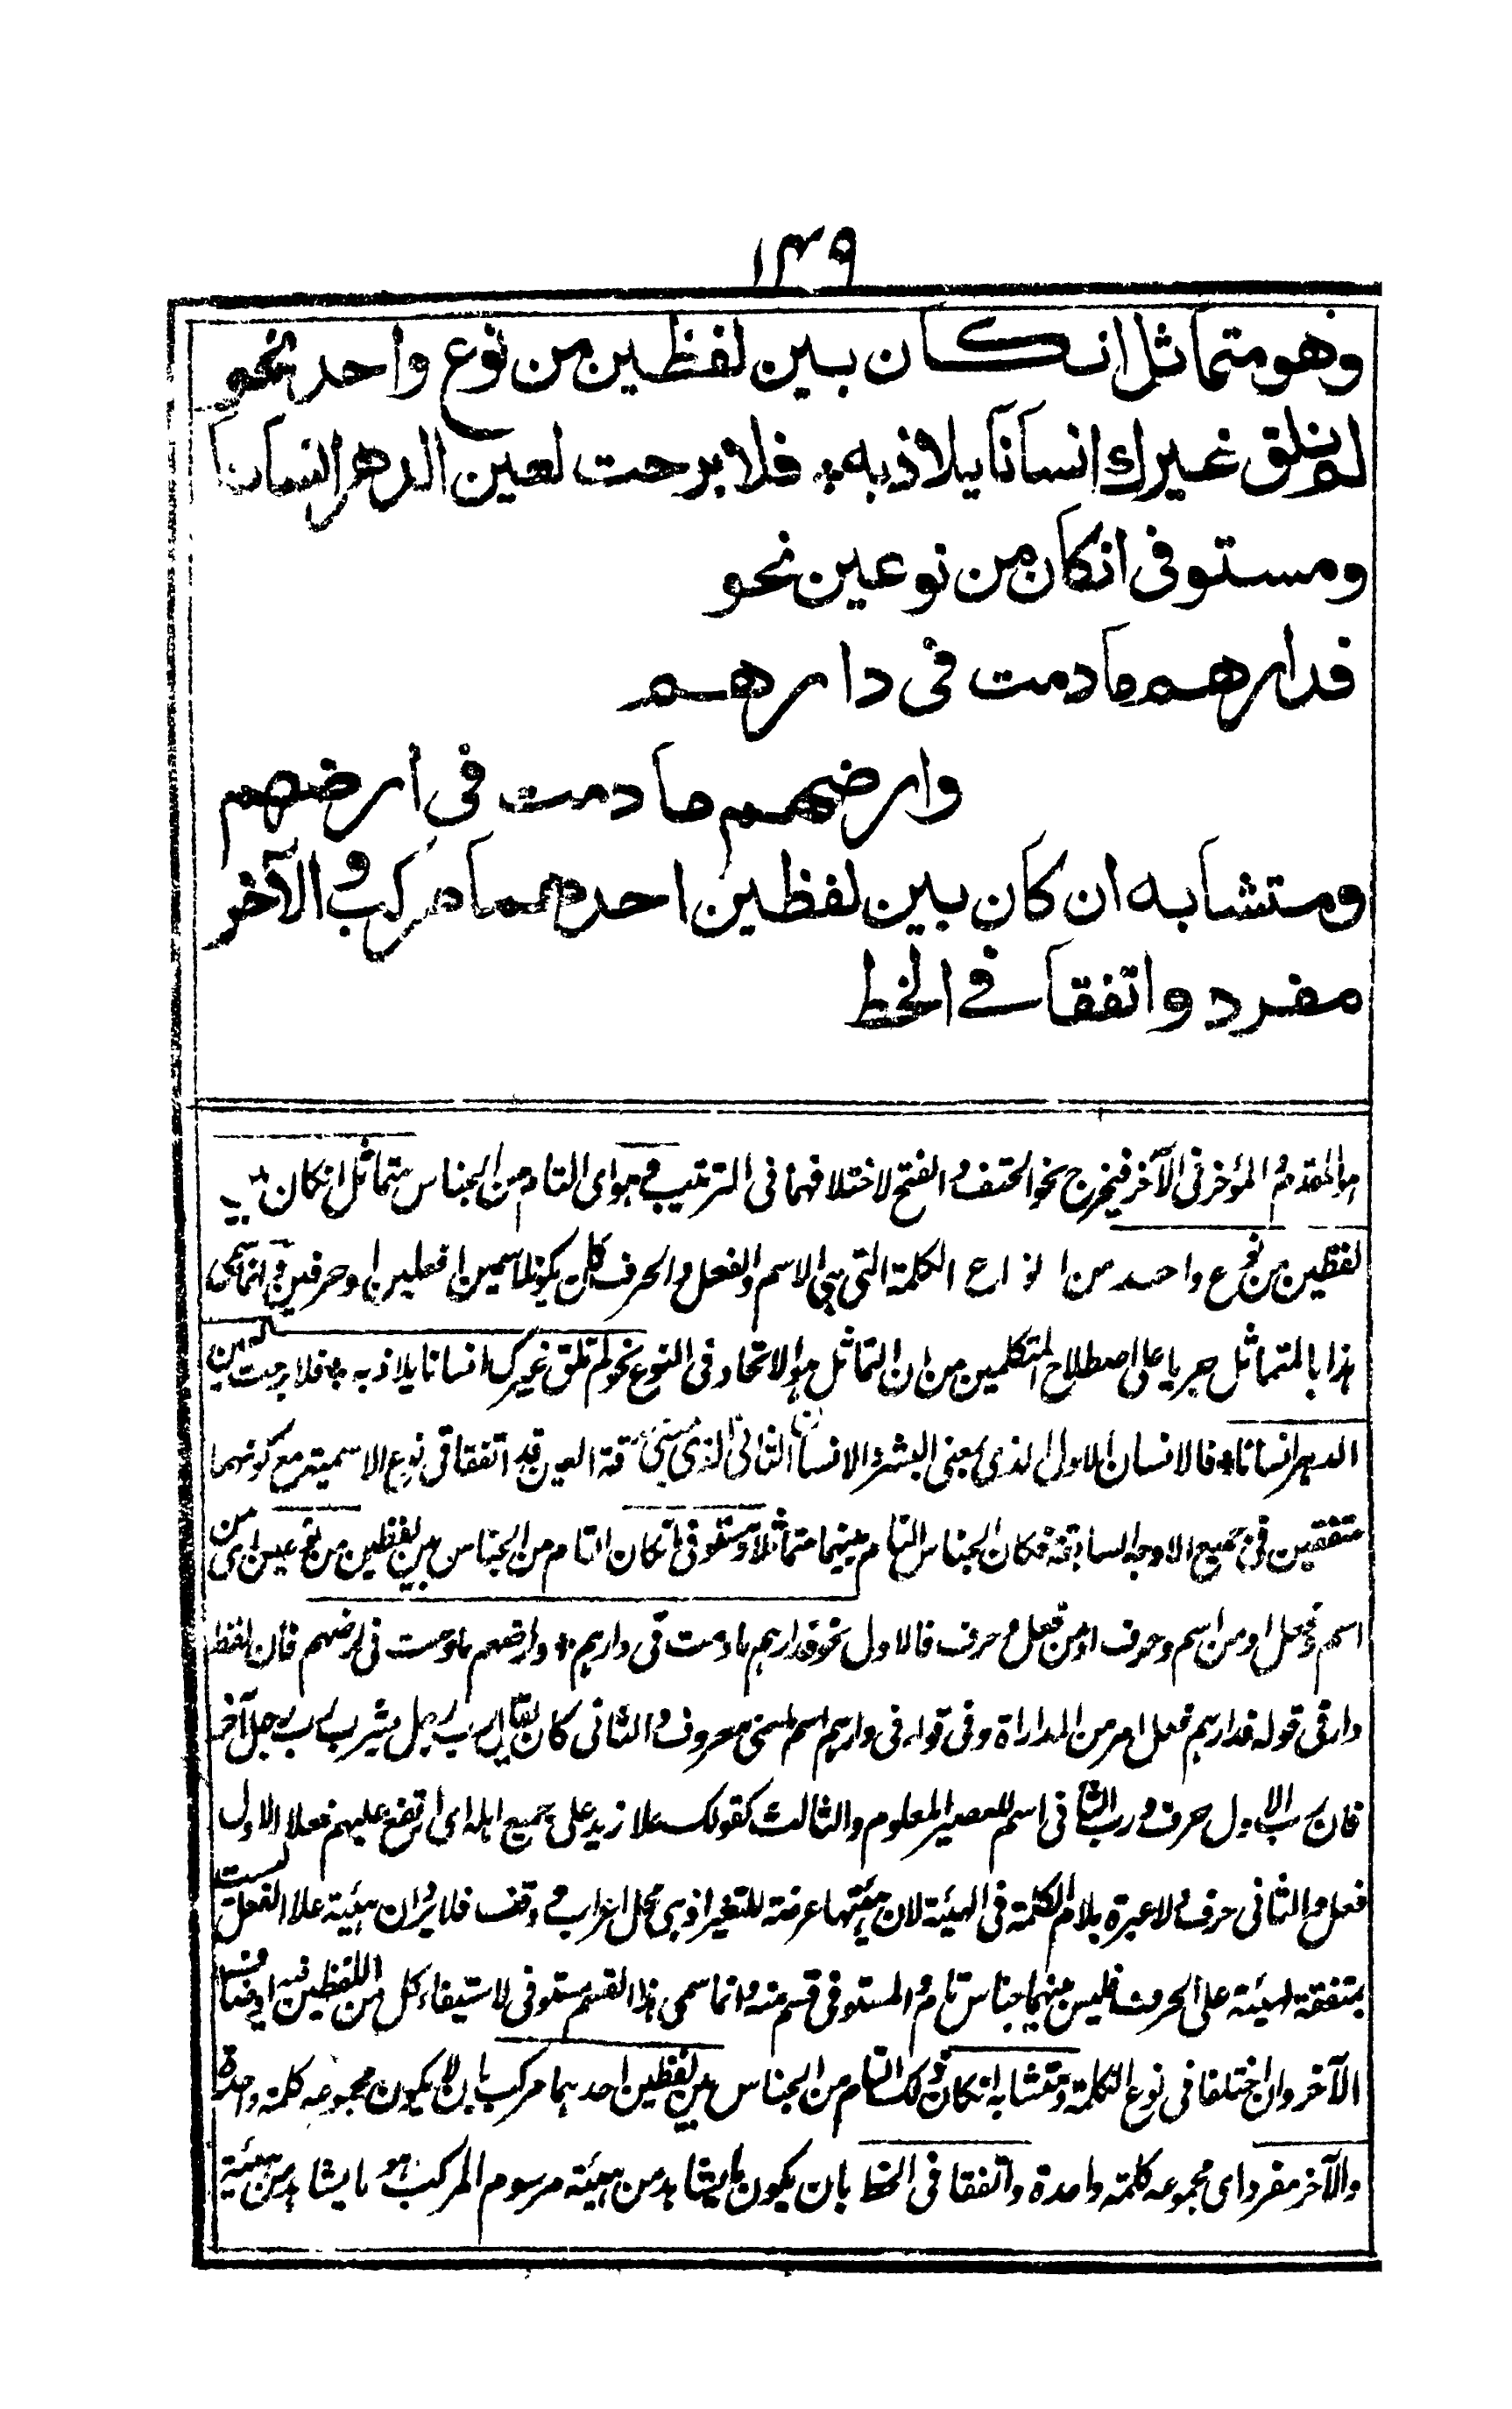 ١٣٩
وهو متماثل ان كان بين لفظين من نوع واحد نحو
لم نلق غيرك انسانا يلاذ به * فلا برحت لعين الدهر انسانا
ومستوفى ان كان من نوعين نحو
فدارهم ما دمت فى دارهم
وارضهم ما دمت فى ارضهم
ومتشابه ان كان بين لفظين احدهما مركب و الآخر
مفرد واتفقا فى الخط
هو المقدم و المؤخر فى الآخر فيخرج نحو الحتف و الفتح لاختلافهما فى الترتيب و هو اى التام من الجناس متماثل ان كان بين
لفظين من نوع واحد من انواع الكلمة التى هى الاسم و الفعل و الحرف كان يكونا اسمين او فعلين او حرفين و انما سمى
هذا بالمتماثل جريا على اصطلاح المتكلمين من ان التماثل هو الاتحاد فى النوع نحو لم تلق غيرك انسانا يلاذ به * فلا برحت لعين
الدهر انسانا * فالانسان الاول الذى بمعنى البشر و الانسان الثانى الذى بمعنى حدقة العين قد اتفقا فى نوع الاسمية مع كونهما
متفقين فى جميع الاوجه السابقة فكان الجناس التام بينهما متماثلا و مستوفى ان كان التام من الجناس بين لفظين من نوعين اى من
اسم و فعل او من اسم و حرف او من فعل و حرف فالاول نحو فدارهم ما دمت فى دارهم * وارضهم ما دمت فى ارضهم فان لفظ
دار فى قوله فدارهم فعل امر من المداراة و فى قوله فى دارهم اسم لمعنى معروف و الثانى كان يقال رب رجل شرب رب رجل آخر
فان رب الاول حرف و رب الثانى اسم للعصير المعلوم و الثالث كقولك علا زيد على جميع اهله اى ارتفع عليهم فعلا الاول
فعل و الثانى حرف و لا عبرة بلام الكلمة فى الهيئة لان هيئتها عرضة للتغير اذ هى محل اعراب و وقف فلا يرد ان هيئة علا الفعل ليست
بمتفقة لهيئة على الحرف فليس بينهما جناس تام و المستوفى قسم منه و انما سمى هذا القسم مستوفى لاستيفاء كل من اللفظين فيه اوصاف
الآخر وان اختلفا فى نوع الكلمة و متشابه ان كان ذلك التام من الجناس بين لفظين احدهما مركب بان لا يكون مجموعه كلمة واحدة
والآخر مفرد اى مجموعه كلمة واحدة واتفقا فى الخط بان يكون ما يشاهد من هيئة مرسوم المركب هو ما يشاهد من هيئة